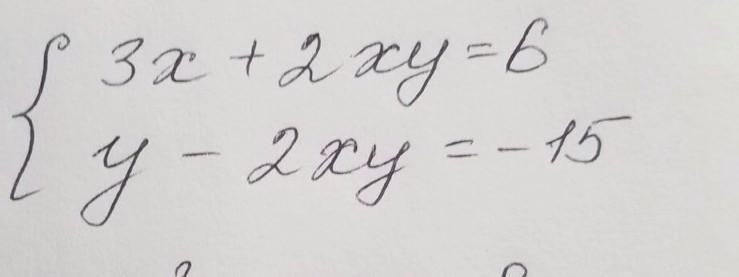 3x + 2xy = 6
y - 2xy = -15